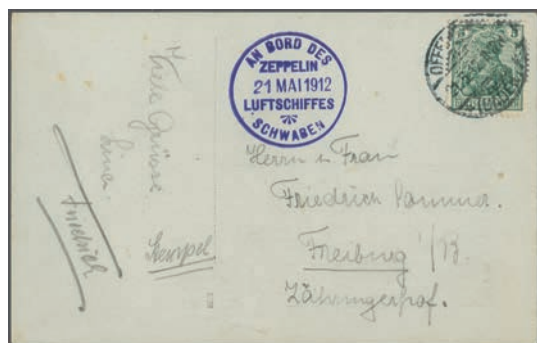 AN BORD DES
ZEPPELIN
21 MAI 1912
LUFTSCHIFFES
SCHWABEN
Viele Grüsse
Friedrich
Stempel
Herrn u Frau
Friedrich
Freiburg i/B.
Zähringerhof.